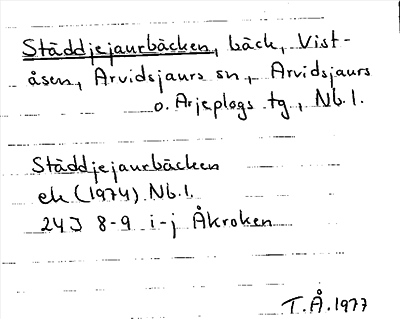 Städdjejaurbäcken, bäck, Vist-
åsen, Arvidsjaurs sn, Arvidsjaurs
o. Arjeplogs tg, Nb.l.
Städdjejaurbäcken
ek (1974) Nb.l.
24J 8-9 i-j Åkroken
T.Å.1977